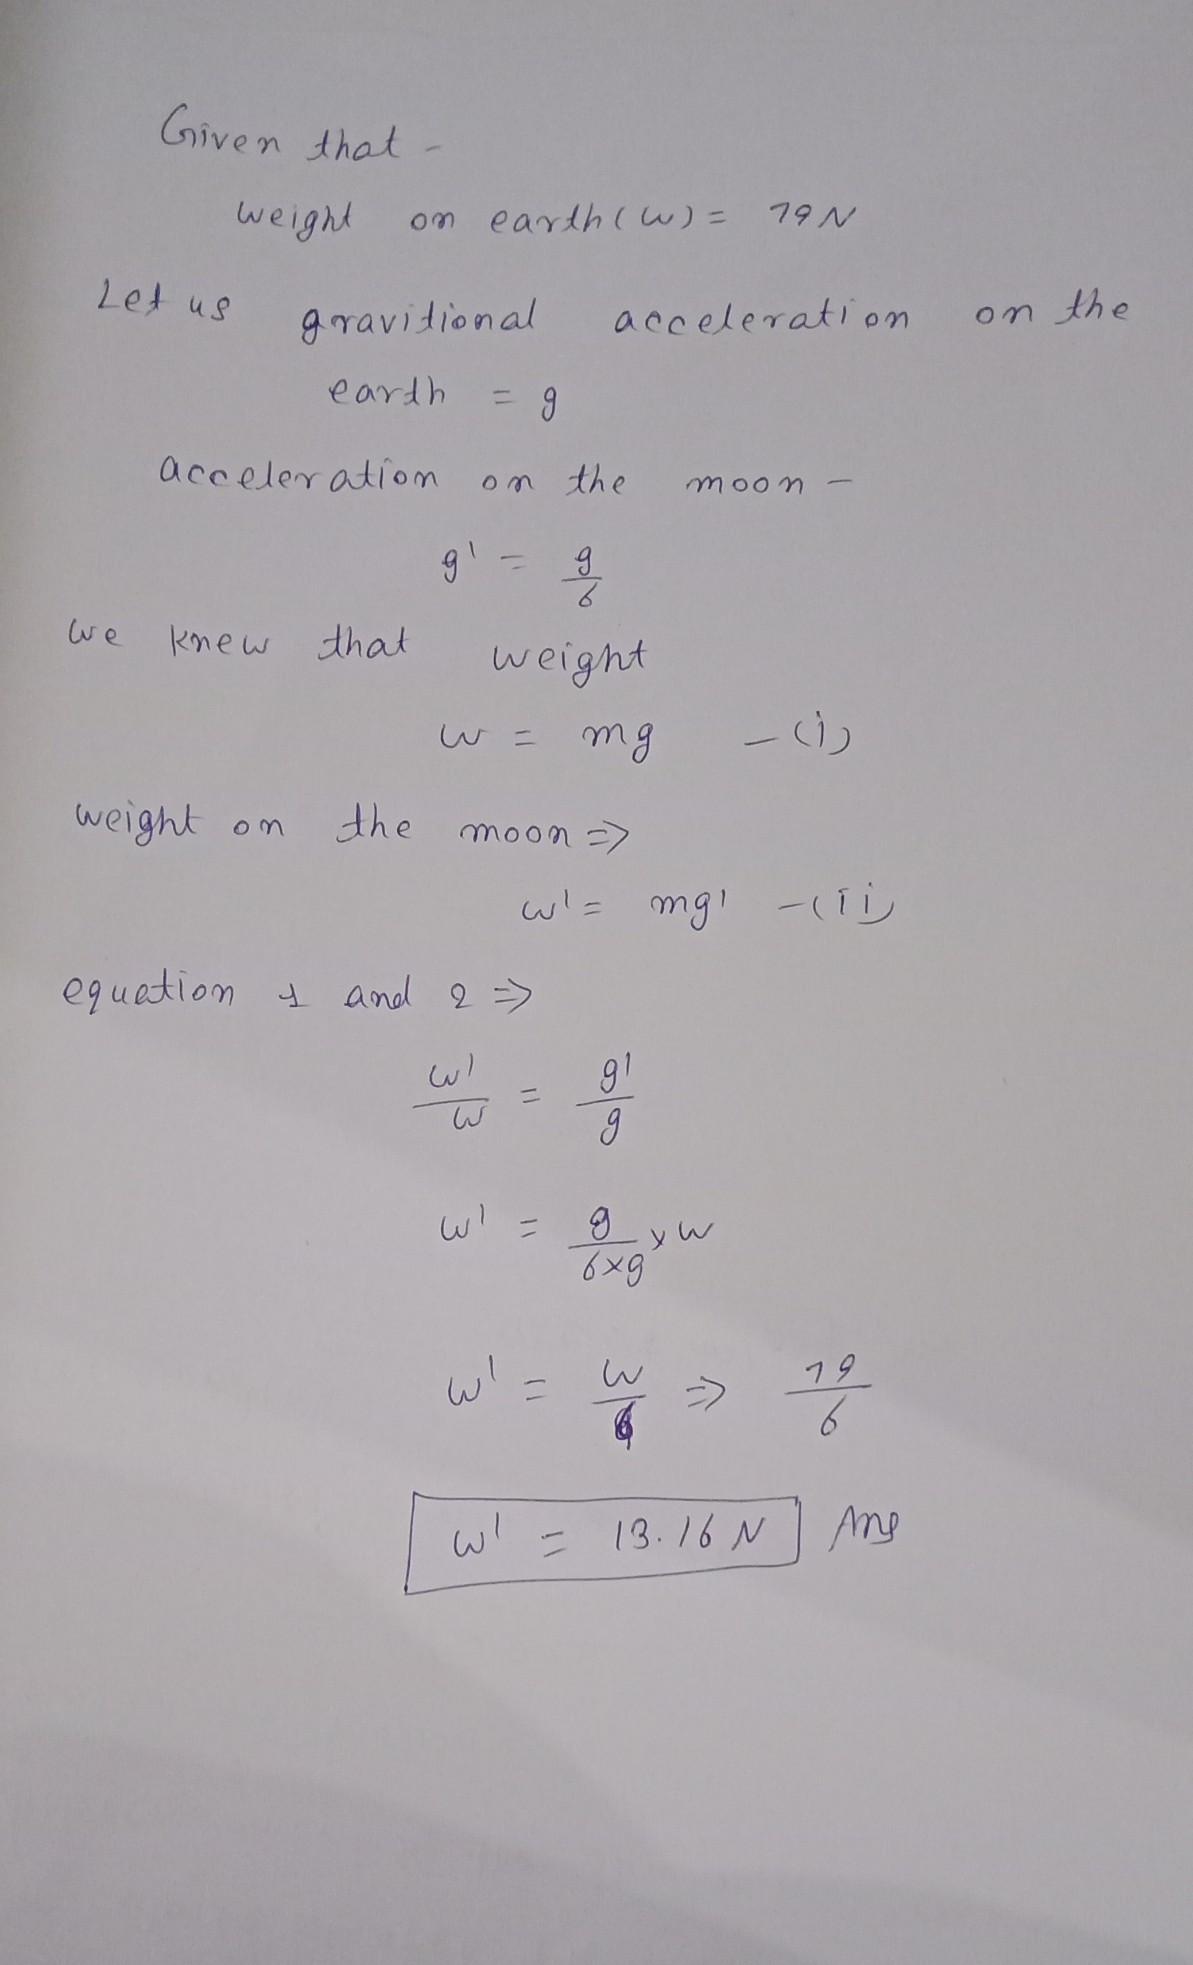 Given that -
weight on earth (w) = 79 N
Let us gravitional acceleration on the
earth = g
acceleration on the moon -
g' = g/6
we knew that weight
w = mg - (i)
weight on the moon ⇒
w' = mg' - (ii)
equation 1 and 2 ⇒
w'/w = g'/g
w' = g/6×g × w
w' = w/6 ⇒ 79/6
w' = 13.16 N Ans